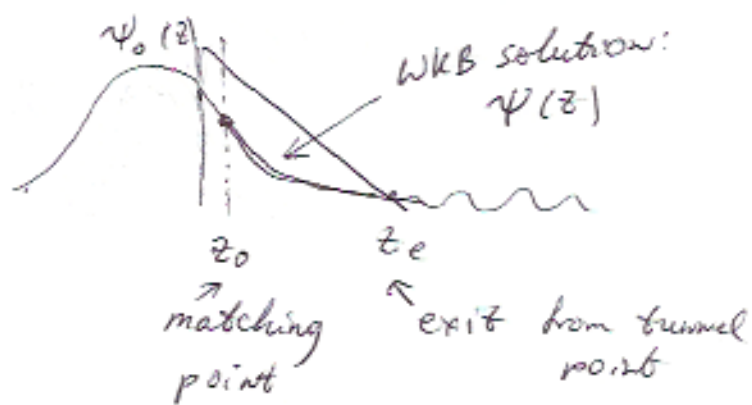 ψ₀(z)
WKB solution:
ψ(z)
z₀
z e
matching
point
exit from tunnel
point